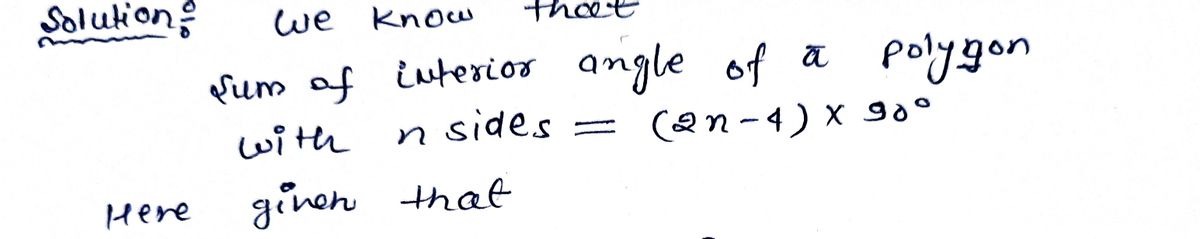 Solution: We know that
sum of interior angle of a polygon
with n sides = (2n-4) x 90°
Here given that